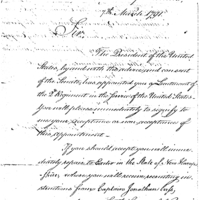 7th March 1791
Sir,
The President of the United
States, by and with the advice and consent
of the Senate, has appointed you a Lieutenant of
the 2d Regiment in the Service of the United States.
You will please immediately to signify to
me your acceptance or non acceptance of
this appointment.
If you should accept you will im-
mediately repair to Exeter in the State of New Hamp-
shire, where you will receive recruiting in-
structions from Captain Jonathan Cass,